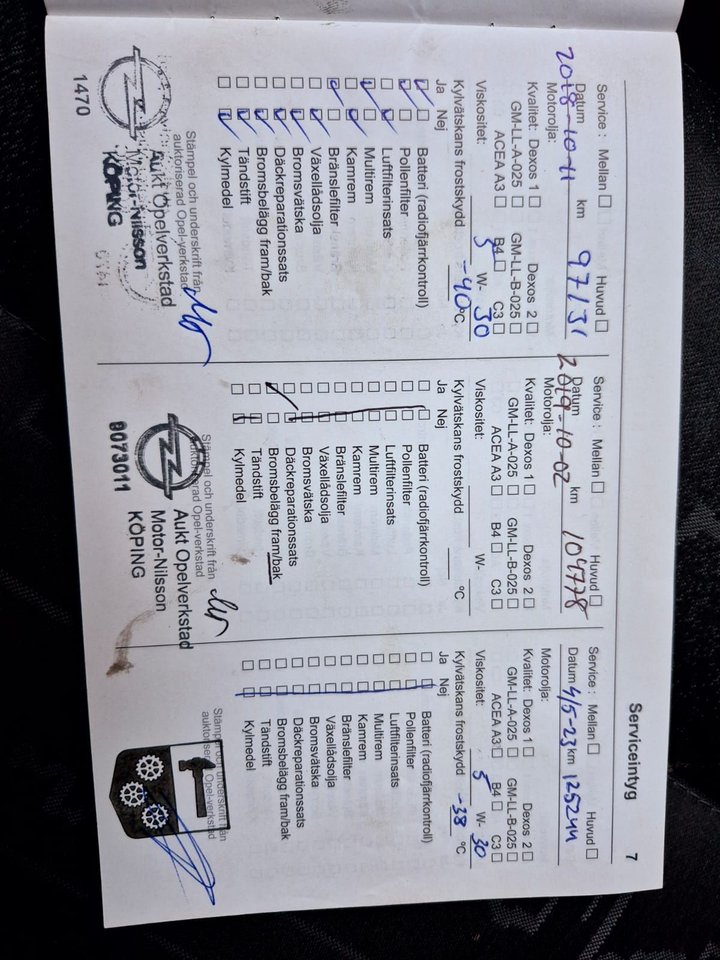 Serviceintyg
7
Service : Mellan Huvud
Datum 2018-10-11 km 97131
Motorolja:
Kvalitet: Dexos 1 Dexos 2
GM-LL-A-025 GM-LL-B-025
ACEA A3 B4 C3
Viskositet: 5 W- 30
Kylvätskans frostskydd -40 °C
Ja Nej
Batteri (radiofjärrkontroll)
Pollenfilter
Luftfilterinsats
Multirem
Kamrem
Bränslefilter
Växellådsolja
Bromsvätska
Däckreparationssats
Bromsbelägg fram/bak
Tändstift
Kylmedel
Stämpel och underskrift från
auktoriserad Opel-verkstad
Aukt Opelverkstad
Motor-Nilsson
KÖPING
1470
Service : Mellan Huvud
Datum 2019-10-02 km 104778
Motorolja:
Kvalitet: Dexos 1 Dexos 2
GM-LL-A-025 GM-LL-B-025
ACEA A3 B4 C3
Viskositet: W-
Kylvätskans frostskydd °C
Ja Nej
Batteri (radiofjärrkontroll)
Pollenfilter
Luftfilterinsats
Multirem
Kamrem
Bränslefilter
Växellådsolja
Bromsvätska
Däckreparationssats
Bromsbelägg fram/bak
Tändstift
Kylmedel
Stämpel och underskrift från
auktoriserad Opel-verkstad
Aukt Opelverkstad
Motor-Nilsson
KÖPING
8073011
Service : Mellan Huvud
Datum 4/5-23 km 125244
Motorolja:
Kvalitet: Dexos 1 Dexos 2
GM-LL-A-025 GM-LL-B-025
ACEA A3 B4 C3
Viskositet: 5 W- 30
Kylvätskans frostskydd -38 °C
Ja Nej
Batteri (radiofjärrkontroll)
Pollenfilter
Luftfilterinsats
Multirem
Kamrem
Bränslefilter
Växellådsolja
Bromsvätska
Däckreparationssats
Bromsbelägg fram/bak
Tändstift
Kylmedel
Stämpel och underskrift från
auktoriserad Opel-verkstad